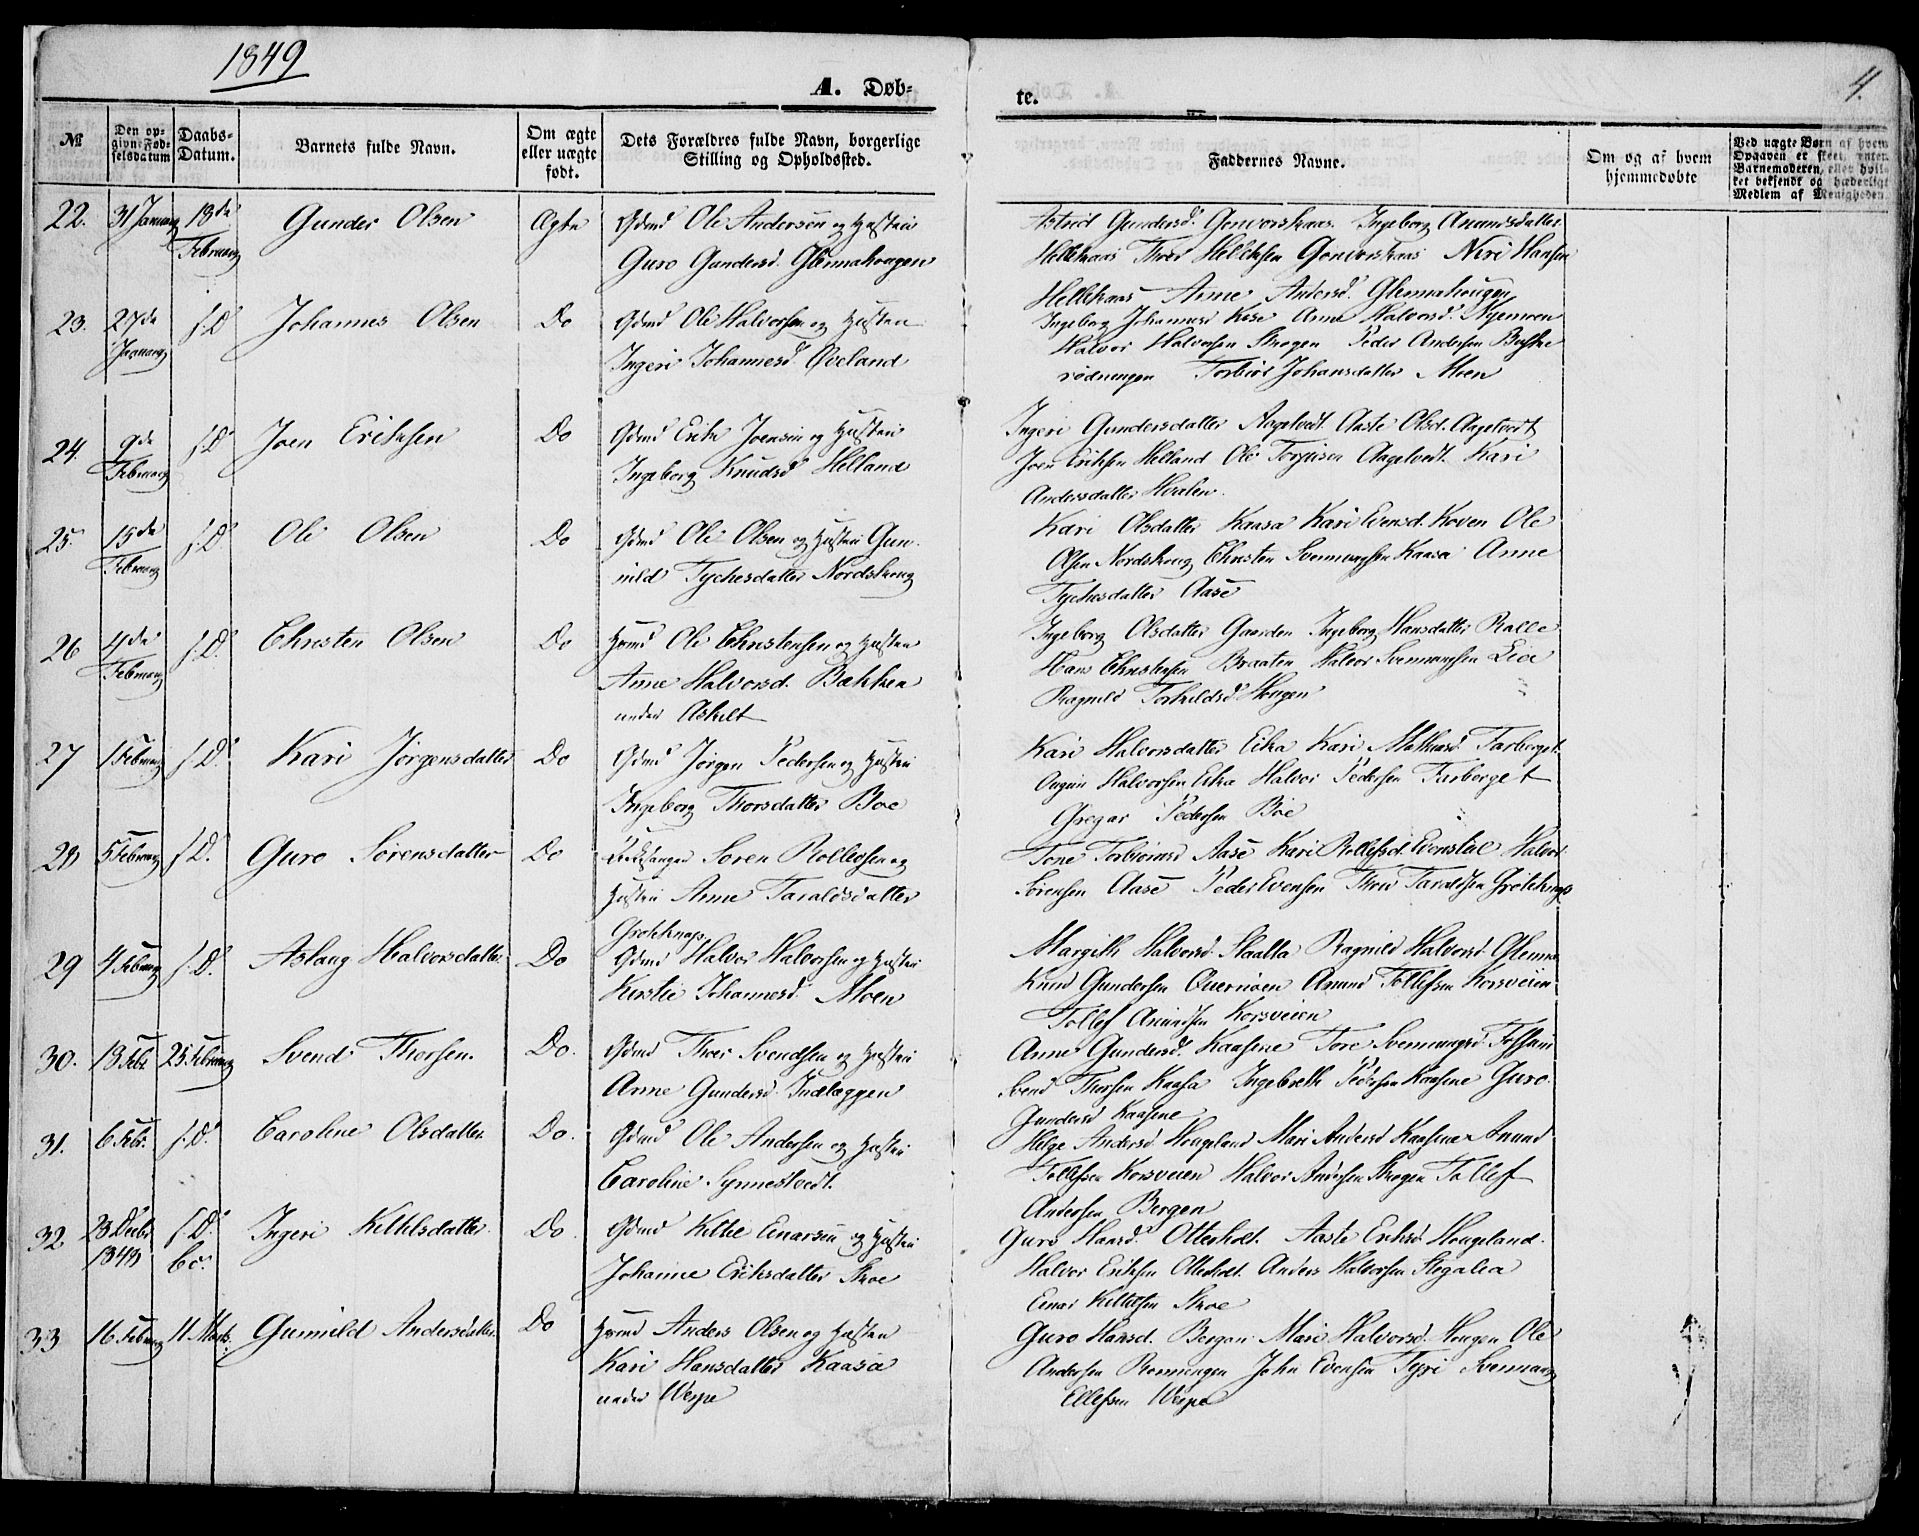 1849
A. Døb-
te.
4.
№
Den op-
givne Fød-
selsdatum
Daabs-
Datum.
Barnets fulde Navn.
Om ægte
eller uægte
født.
Dets Forældres fulde Navn, borgerlige
Stilling og Opholdssted.
Faddernes Navne.
Om og af hvem
hjemmedøbte
Ved uægte Børn af hvem
Opgaven er skeet, enten
Barnemoderen, eller hvil-
ket bekjendt og hæderligt
Medlem af Menigheden.
22. 31 January 18de February Gunder Olsen Ægte Gdmd Ole Andersen og Hustru
Guro Gundersd. Glennahougen
Astrid Gundersd. Gonvorskaas Ingeborg Anundsdatter
Hellekaas Thor Helleksen Gonvorskaas Niri Hansen
Hellekaas Anne Andersd. Glennahougen
23. 27de January s:D Johannes Olsen Do Gdmd Ole Halvorsen og Hustru
Ingeri Johannesd. Øveland
Ingeborg Johannesd Kase Anne Halvorsd. Nyemoen
Halvor Halvorsen Skogen Peder Andersen
rødningen Torbiør Johansdatter Moen
24. 9de February s:D Joen Eriksen Do Gdmd Erik Joensen og Hustru
Ingeborg Knudsd Helland
Ingeri Gundersdatter Aagetvedt Aaste Olsd. Aagetvedt
Joen Eriksen Helland Ole Torjusen Aagetvedt. Kari
Andersdatter Hvalen.
25. 15de February s:D. Ole Olsen Do Gdmd Ole Olsen og Hustru Gun-
nild Tychesdatter Nordskoug
Kari Olsdatter Kaasa Kari Evensd. Koven Ole
Olsen Nordskoug Christen Svennungsen Kaasa Anne
Tychesdatter Aase
26 4de February s:D. Christen Olsen Do Hmd Ole Christensen og Hustru
Anne Halvorsd. Bækken
under Askilt
Ingeborg Olsdatter Gaarden Ingeborg Hansdatter Kalle
Hans Christensen Braaten Halvor Svennungsen Lia
Ragnild Torkildsd Hougen
27 1 February s:D. Kari Jørgensdatter Do Gdmd Jørgen Pedersen og Hustru
Ingeborg Thorsdatter Boe
Kari Halvorsdatter Eika Kari Mathiasd Tarberget.
Halvorsen Eika Halvor Pedersen Tarberget
Gregar Pedersen Boe
28 5 February s:D. Guro Sørensdatter Do Søren Rollefsen og
Hustru Anne Taraldsdatter
Groteknap.
Tone Torbiørnsd Aase Kari Rollefsd. Evenstul Halvor
Sørensen Aase Peder Evensen Thor Taraldsen Grøteknap
29 4 February s:D. Aslaug Halvorsdatter. Do Gdmd Halvor Halvorsen og Hustru
Kirstie Johannesd. Moen
Margith Halvorsd. Ragnild Halvorsd. Glenna
Knud Gundersen Quernøen Anund Tollefsen Korsveien
Tollef Anundsen Korsveien
30. 13 Febr. 25 February Svend Thorsen. Do. Gdmd Thor Svendsen og Hustru
Anne Gundersd. Indlæggen
Anne Gundersd. Kaasene Tore Svennungsd
Svend Thorsen Kaasa Ingebreth Pedersen Kaasene Guro
Gundersd Kaasene
31. 6 Febr. s:D. Caroline Olsdatter. Do. Gdmd Ole Andersen og Hustru
Caroline Synnestvedt.
Helge Andersd Hougeland Mari Andersd Kaasene Anund
Tollefsen Korsveien Halvor Andersen Skogen Tollef
Andersen Bergen
32 28 Decbr 1848 s:D. Ingeri Kittilsdatter. Do. Gdmd Kittil Einarsen og Hustru
Johanne Eriksdatter Skoe
Guro Hansd. Otterholt. Aaste Eriksd Hougeland.
Halvor Eriksen Otterholt. Anders Halvorsen Stegalia
Einar Kittilsen Skoe
33 16 February 11 Marts. Gunnild Andersdatter. Do Hmd Anders Olsen og Hustru
Kari Hansdatter Kaasa
under Wespe
Guro Hansd. Bergan Mari Halvorsd. Hougen Ole
Andersen Rønningen John Evensen Tyri Svennung
Ellefsen Wespe